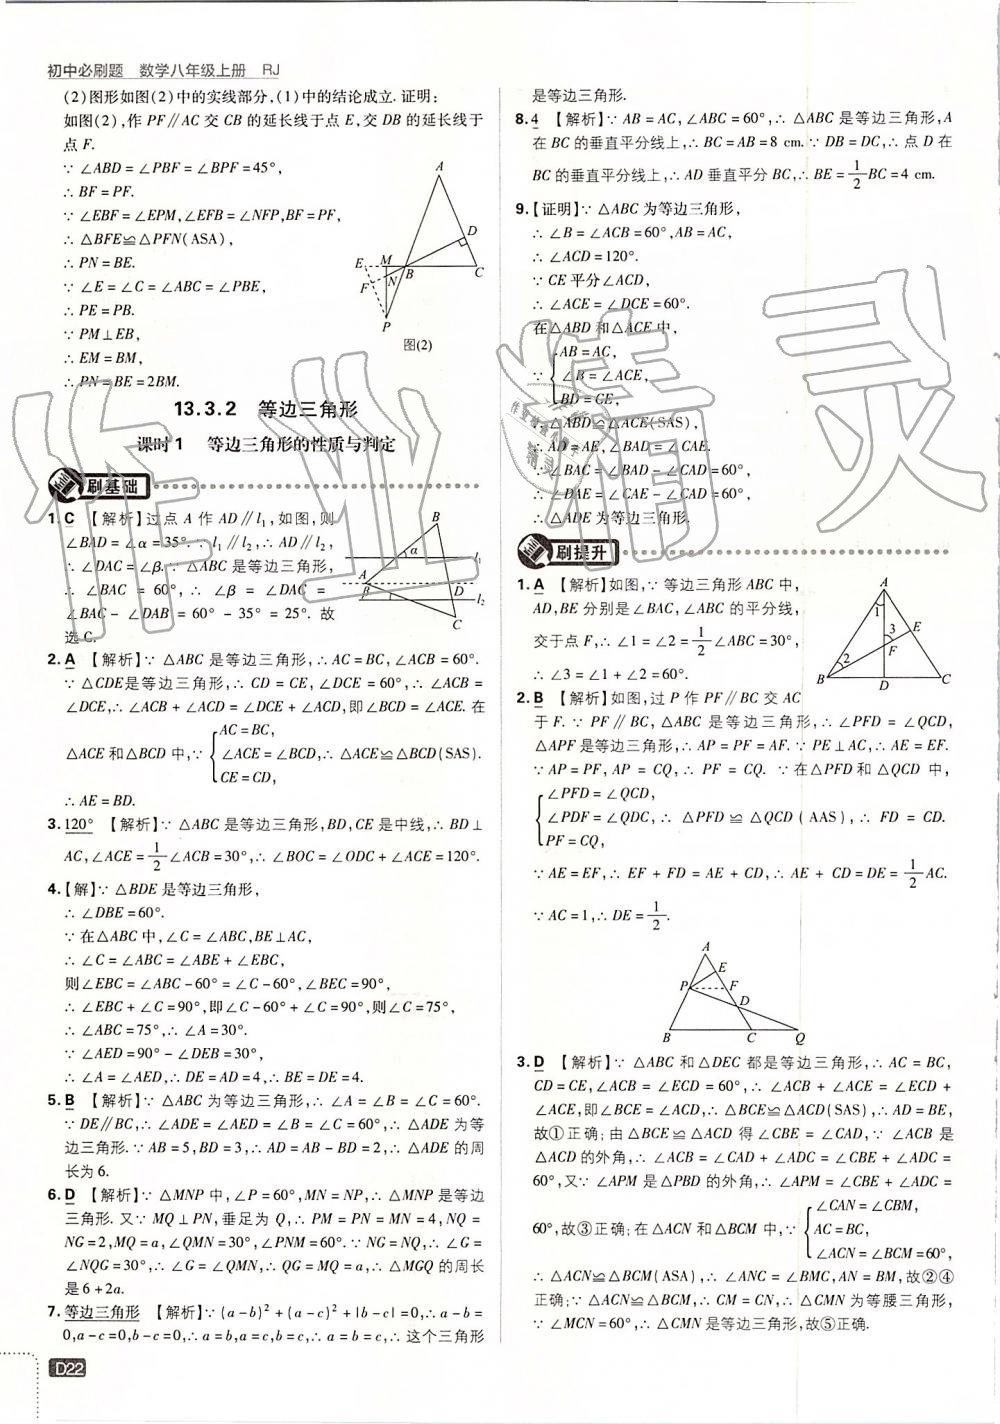 初中必刷题 数学八年级上册 RJ
(2)图形如图(2)中的实线部分,(1)中的结论成立.证明:
如图(2),作 PF∥AC 交 CB 的延长线于点 E,交 DB 的延长线于
点 F.
∵ ∠ABD = ∠PBF = ∠BPF = 45°,
∴ BF = PF.
∵ ∠EBF = ∠EPM, ∠EFB = ∠NFP, BF = PF,
∴ △BFE≌△PFN(ASA),
∴ PN = BE.
∵ ∠E = ∠C = ∠ABC = ∠PBE,
∴ PE = PB.
∵ PM⊥EB,
∴ EM = BM,
∴ PN = BE = 2BM.
A
D
E
M
B
C
F
N
P
图(2)
13.3.2 等边三角形
课时1 等边三角形的性质与判定
刷基础
1. C 【解析】过点 A 作 AD∥l₁,如图,则
∠BAD = ∠α = 35°. ∵ l₁∥l₂,∴ AD∥l₂,
∴ ∠DAC = ∠β. ∵ △ABC 是等边三角形,
∴ ∠BAC = 60°, ∴ ∠β = ∠DAC =
∠BAC - ∠DAB = 60° - 35° = 25°. 故
选 C.
B
α
l₁
A
β
D
l₂
C
2. A 【解析】∵ △ABC 是等边三角形,∴ AC = BC, ∠ACB = 60°.
∵ △CDE是等边三角形,∴ CD = CE, ∠DCE = 60°,∴ ∠ACB =
∠DCE,∴ ∠ACB + ∠ACD = ∠DCE + ∠ACD,即∠BCD = ∠ACE. 在
△ACE 和△BCD 中,∵ { AC = BC, ∠ACE = ∠BCD, CE = CD, ∴ △ACE≌△BCD(SAS).
∴ AE = BD.
3. 120° 【解析】∵ △ABC 是等边三角形,BD,CE 是中线,∴ BD⊥
AC, ∠ACE = 1/2 ∠ACB = 30°,∴ ∠BOC = ∠ODC + ∠ACE = 120°.
4.【解】∵ △BDE 是等边三角形,
∴ ∠DBE = 60°.
∵ 在△ABC 中, ∠C = ∠ABC, BE⊥AC,
∴ ∠C = ∠ABC = ∠ABE + ∠EBC,
则∠EBC = ∠ABC - 60° = ∠C - 60°, ∠BEC = 90°,
∴ ∠EBC + ∠C = 90°,即∠C - 60° + ∠C = 90°,则∠C = 75°,
∴ ∠ABC = 75°,∴ ∠A = 30°.
∵ ∠AED = 90° - ∠DEB = 30°,
∴ ∠A = ∠AED,∴ DE = AD = 4,∴ BE = DE = 4.
5. B 【解析】∵ △ABC 为等边三角形,∴ ∠A = ∠B = ∠C = 60°.
∵ DE∥BC,∴ ∠ADE = ∠AED = ∠B = ∠C = 60°,∴ △ADE 为等
边三角形. ∵ AB = 5, BD = 3,∴ AD = AB - BD = 2,∴ △ADE 的周
长为 6.
6. D 【解析】∵ △MNP 中, ∠P = 60°, MN = NP,∴ △MNP 是等边
三角形. 又∵ MQ⊥PN,垂足为 Q,∴ PM = PN = MN = 4, NQ =
NG = 2, MQ = a, ∠QMN = 30°, ∠PNM = 60°. ∵ NG = NQ,∴ ∠G =
∠NQG = 30°,∴ ∠G = ∠QMN,∴ QG = MQ = a,∴ △MGQ 的周长
是 6 + 2a.
7. 等边三角形 【解析】∵ (a-b)² + (a-c)² + |b-c| = 0,∴ a-b=
0,a-c=0,b-c=0,∴ a=b,a=c,b=c,∴ 这个三角形
D22
是等边三角形.
8. 4 【解析】∵ AB = AC, ∠ABC = 60°,∴ △ABC 是等边三角形,A
在 BC 的垂直平分线上,∴ BC = AB = 8 cm. ∵ DB = DC,∴ 点 D 在
BC 的垂直平分线上,∴ AD 垂直平分 BC,∴ BE = 1/2 BC = 4 cm.
9.【证明】∵ △ABC 为等边三角形,
∴ ∠B = ∠ACB = 60°, AB = AC,
∴ ∠ACD = 120°.
∵ CE 平分∠ACD,
∴ ∠ACE = ∠DCE = 60°.
在△ABD 和△ACE 中,
∵ { AB = AC, ∠B = ∠ACE, BD = CE,
∴ △ABD≌△ACE(SAS),
∴ AD = AE, ∠BAD = ∠CAE.
∴ ∠BAC = ∠BAD + ∠CAD = 60°,
∴ ∠DAE = ∠CAE + ∠CAD = 60°,
∴ △ADE 为等边三角形.
刷提升
1. A 【解析】如图,∵ 等边三角形 ABC 中,
AD,BE 分别是∠BAC, ∠ABC 的平分线,
交于点 F,∴ ∠1 = ∠2 = 1/2 ∠ABC = 30°,
∴ ∠3 = ∠1 + ∠2 = 60°.
A
1
3
E
F
2
B
D
C
2. B 【解析】如图,过 P 作 PF∥BC 交 AC
于 F. ∵ PF∥BC, △ABC 是等边三角形,∴ ∠PFD = ∠QCD,
△APF 是等边三角形,∴ AP = PF = AF. ∵ PE⊥AC,∴ AE = EF.
∵ AP = PF, AP = CQ,∴ PF = CQ. ∵ 在△PFD 和△QCD 中,
{ ∠PFD = ∠QCD, ∠PDF = ∠QDC, PF = CQ, ∴ △PFD≌△QCD(AAS),∴ FD = CD.
∵ AE = EF,∴ EF + FD = AE + CD,∴ AE + CD = DE = 1/2 AC.
∵ AC = 1,∴ DE = 1/2.
A
E
P
F
D
B
C
Q
3. D 【解析】∵ △ABC 和△DEC 都是等边三角形,∴ AC = BC,
CD = CE, ∠ACB = ∠ECD = 60°,∴ ∠ACB + ∠ACE = ∠ECD +
∠ACE,即∠BCE = ∠ACD,∴ △BCE≌△ACD(SAS),∴ AD = BE,
故①正确;由△BCE≌△ACD 得∠CBE = ∠CAD,∵ ∠ACB 是
△ACD 的外角,∴ ∠ACB = ∠CAD + ∠ADC = ∠CBE + ∠ADC =
60°,又∵ ∠APM 是△PBD 的外角,∴ ∠APM = ∠CBE + ∠ADC =
60°,故③正确;在△ACN 和△BCM 中,∵ { ∠CAN = ∠CBM, AC = BC, ∠ACN = ∠BCM = 60°,
∴ △ACN≌△BCM(ASA),∴ ∠ANC = ∠BMC, AN = BM,故②④
正确;∵ △ACN≌△BCM,∴ CM = CN,∴ △CMN 为等腰三角形,
∵ ∠MCN = 60°,∴ △CMN 是等边三角形,故⑤正确.
作业精灵